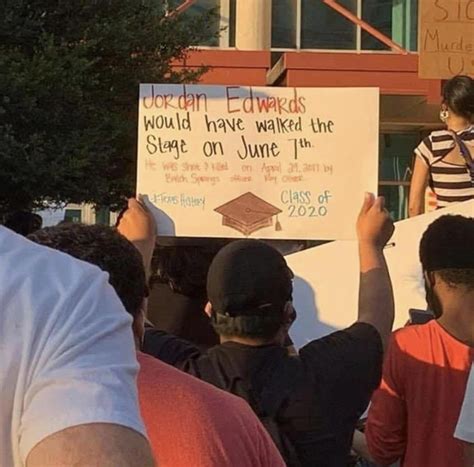 Jordan Edwards
would have walked the
Stage on June 7th.
He was shot & killed on April 29, 2017 by
Balch Springs officer Roy Oliver
Class of
2020
Murde